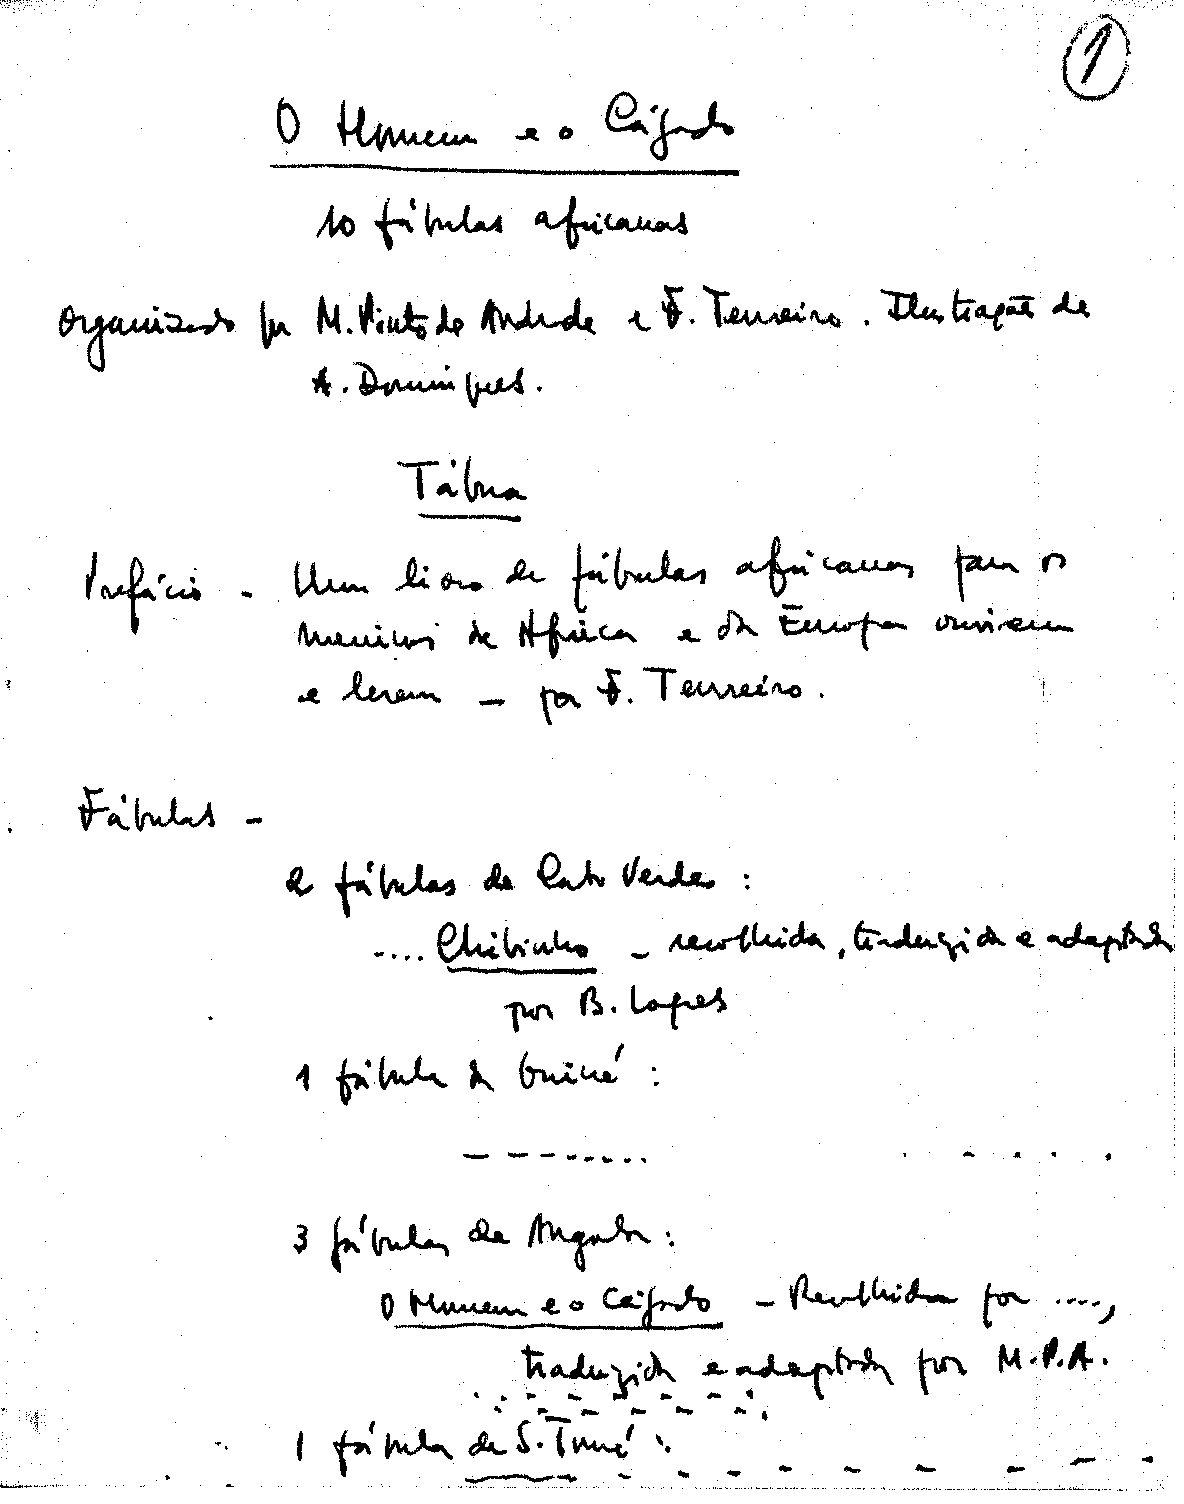 1
O Homem e o Cágado
10 fábulas africanas
Organizado por M. Pinto de Andrade e F. Tenreiro. Ilustração de
A. Domingues.
Tábua
Prefácio - Um livro de fábulas africanas para os
meninos de África e da Europa ouvirem
e lerem - por F. Tenreiro.
Fábulas -
2 fábulas de Cabo Verde :
.... Chibinho - recolhida, traduzida e adaptada
por B. Lopes
1 fábula da Guiné :
3 fábulas de Angola :
O Homem e o Cágado - Recolhida por ....,
traduzida e adaptada por M.P.A.
1 fábula de S. Tomé :